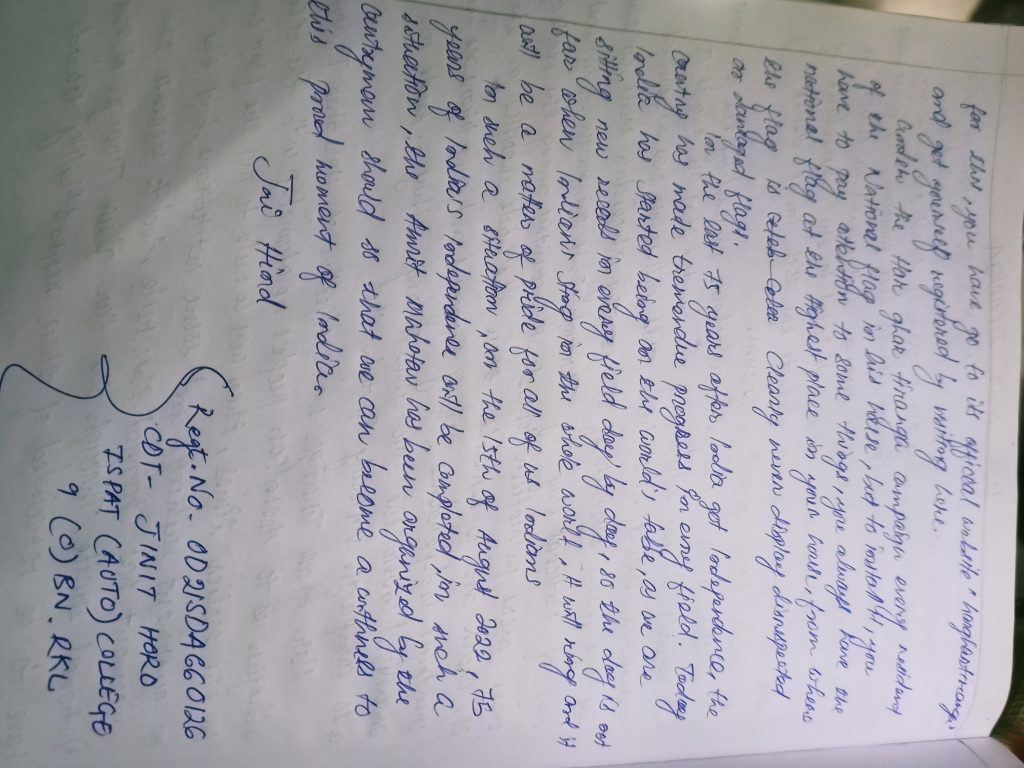 for this, you have go to its offical website "harghartiranga"
and got yourself registered by visiting here.
under the Har ghar tiranga campaign every resident
of the National flag in his house, but to install it, you
have to pay attention to some things, you always have the
national flag at the highest place in your house, from where
the flag is Cleary never display disrespected
or damaged flags.
In the last 75 years after India got Independance, the
country has made tremendus progress in every field. Today
India has started being on the world's table, as we are
sitting new records in every field day by day, so the day is not
far when India's stag in the whole world, it will ring and it
will be a matter of pride for all of us Indians
In such a sitration, on the 15th of August 2022, 75
years of India's Independence will be completed, in such a
sitration, the Amrit Mahotsav has been organized by the
should so that we can become a withness to
this proud moment of India.
Jai Hind
Regt.No- OD21SDA660126
CDT- JINIT HORO
ISPAT (AUTO) COLLEGE
9 (O) BN. RKL